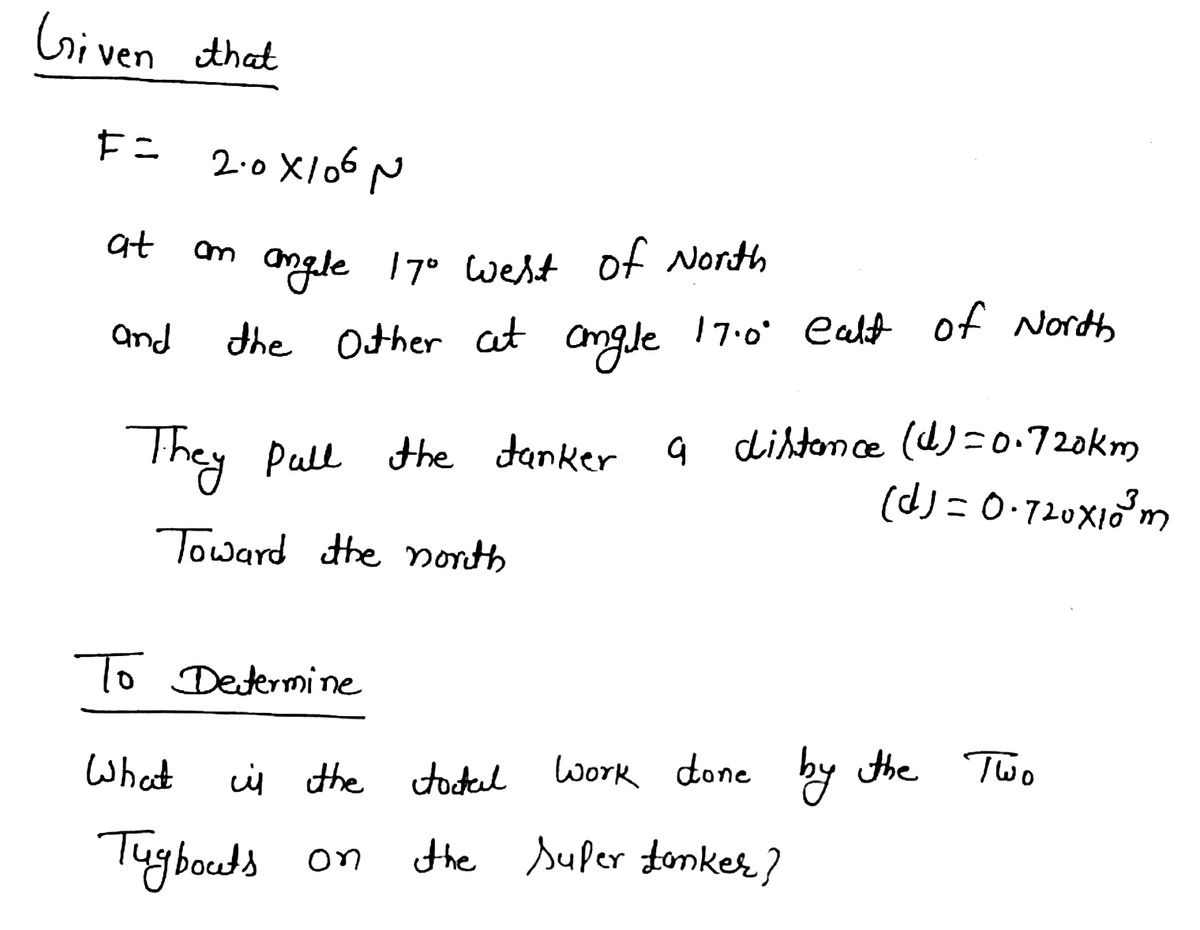 Given that
F = 2.0 X10⁶ N
at an angle 17° West of North
and the other at angle 17.0° east of North
They pull the tanker a distance (d) = 0.720km
(d) = 0.720X10³ m
Toward the north
To Determine
What is the total work done by the Two
Tugboats on the Super tanker?